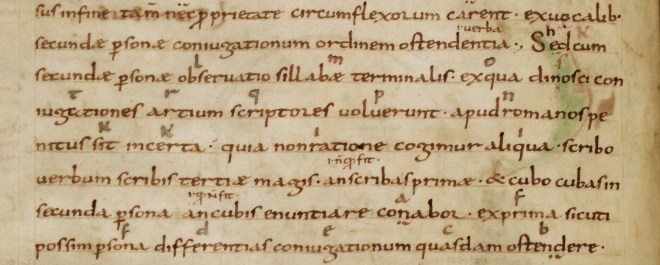 sus infine tam̅ nec ꝓprietate circumflexorum carent · exuocalib·
i· uerba
secundæ ꝑsonæ coniugationum ordinem ostendentia ·, Sed cum
h
secundæ ꝑsonæ obseruatio sillabæ terminalis · exqua dinosci con
l m o
iugationes artium scriptores voluerunt · apud romanos pe
t r q p n
nitus sit incerta · quia nonratione cogimur aliqua · scribo
k k i
uerbum scribis tertiæ magis · anscribas primæ · & cubo cubas in
secunda ꝑsona ancubis enuntiare conabor · exprima sicuti
a f
possim ꝑsona differentias coniugationum quasdam ostendere ·
f d e c b